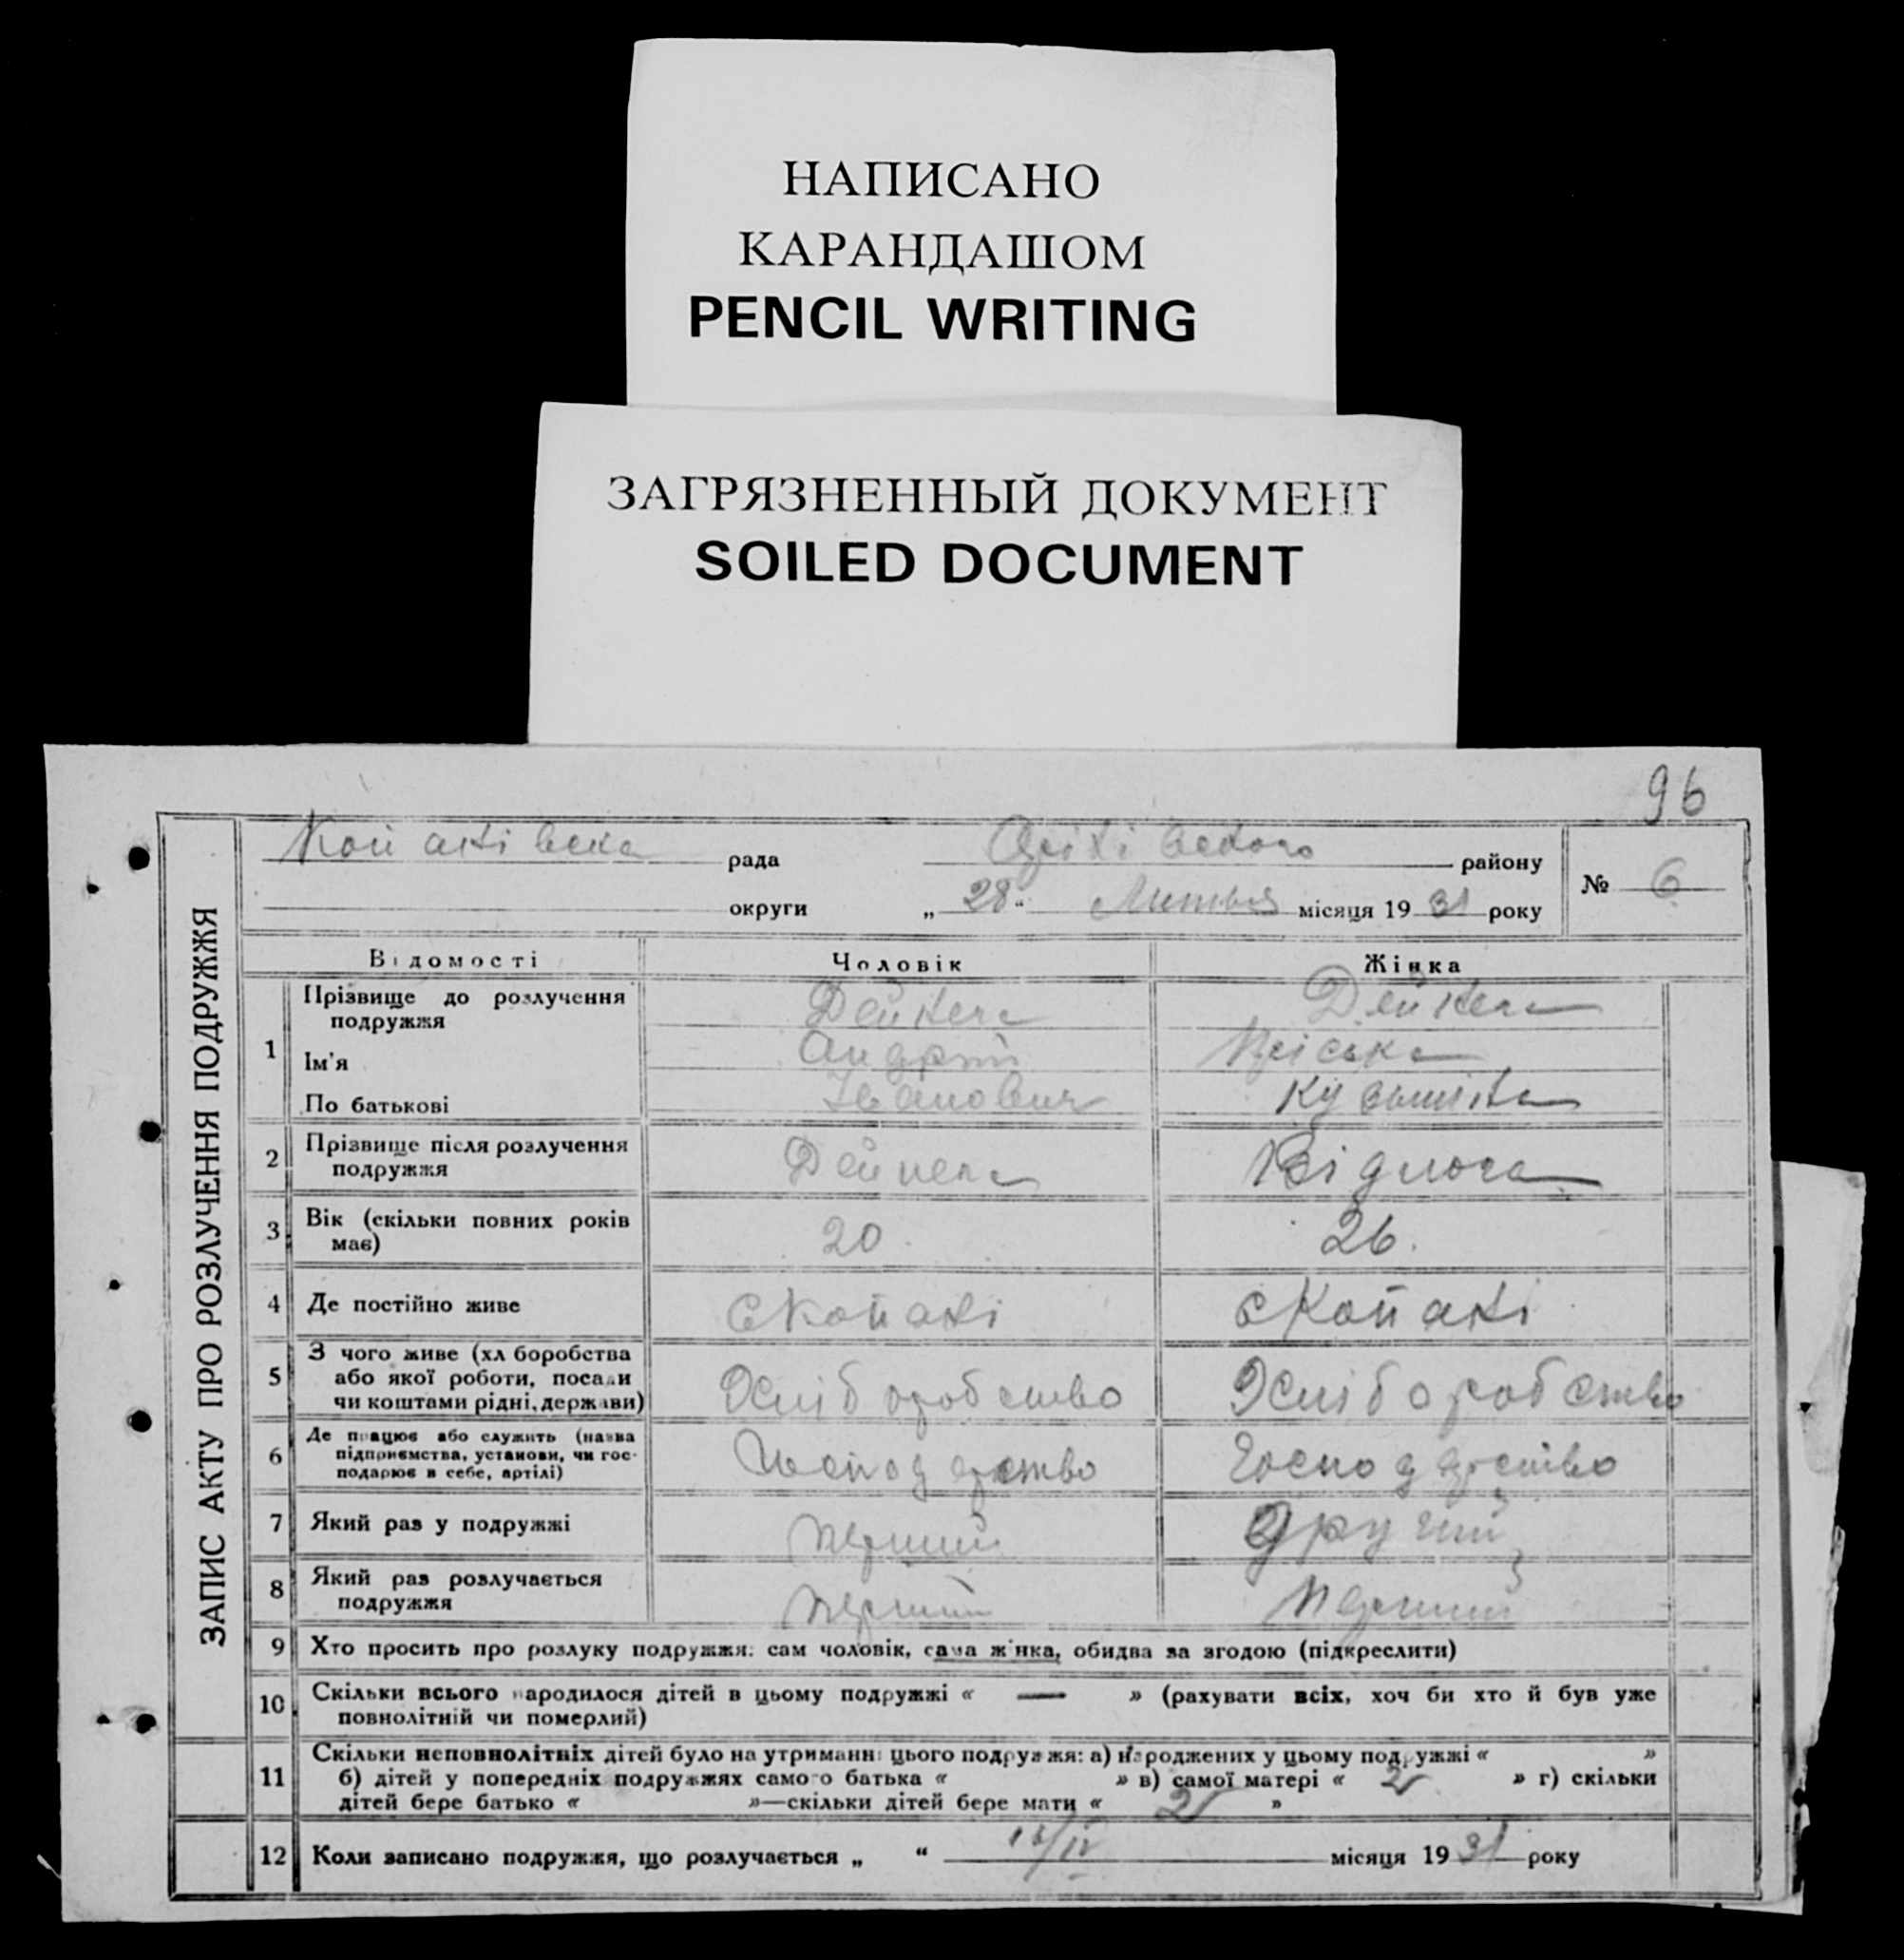 НАПИСАНО
КАРАНДАШОМ
PENCIL WRITING
ЗАГРЯЗНЕННЫЙ ДОКУМЕНТ
SOILED DOCUMENT
96
ЗАПИС АКТУ ПРО РОЗЛУЧЕННЯ ПОДРУЖЖЯ
рада району
№ 6
округи „ 28 “ місяця 19 31 року
Відомості Чоловік Жінка
1 Прізвище до розлучення подружжя Дейнека Дейнека
Ім'я Андрій Пріська
По батькові Іванович
2 Прізвище після розлучення подружжя Дейнека
3 Вік (скільки повних років має) 20 26
4 Де постійно живе с Копанки с Копанки
5 З чого живе (хліборобства або якої роботи, посади чи коштами рідні, держави) Хліборобство Хліборобство
6 Де працює або служить (назва підприємства, установи, чи господарює в себе, артілі) Господарство Господарство
7 Який раз у подружжі перший другий
8 Який раз розлучається подружжя перший перший
9 Хто просить про розлуку подружжя: сам чоловік, сама жінка, обидва за згодою (підкреслити)
10 Скільки всього народилося дітей в цьому подружжі « — » (рахувати всіх, хоч би хто й був уже
повнолітній чи померлий)
11 Скільки неповнолітніх дітей було на утриманні цього подружжя: а) народжених у цьому подружжі « »
б) дітей у попередніх подружжях самого батька « » в) самої матері « 2 » г) скільки
дітей бере батько « »—скільки дітей бере мати « 2 »
12 Коли записано подружжя, що розлучається „ “ місяця 19 31 року